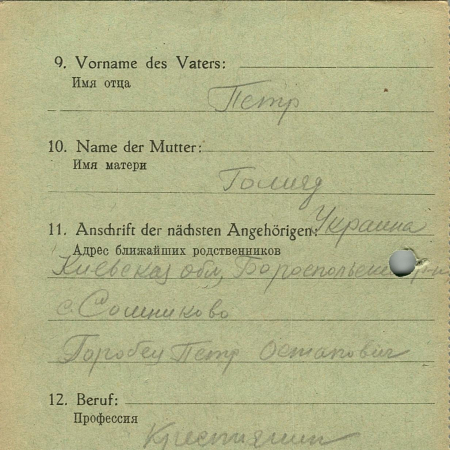 9. Vorname des Vaters:
Имя отца
Петр
10. Name der Mutter:
Имя матери
11. Anschrift der nächsten Angehörigen:
Украина
Адрес ближайших родственников
Киевская обл. Бороспольский
с. Сошниково
Горобец Петр Остапович
12. Beruf:
Профессия
Крестиянин